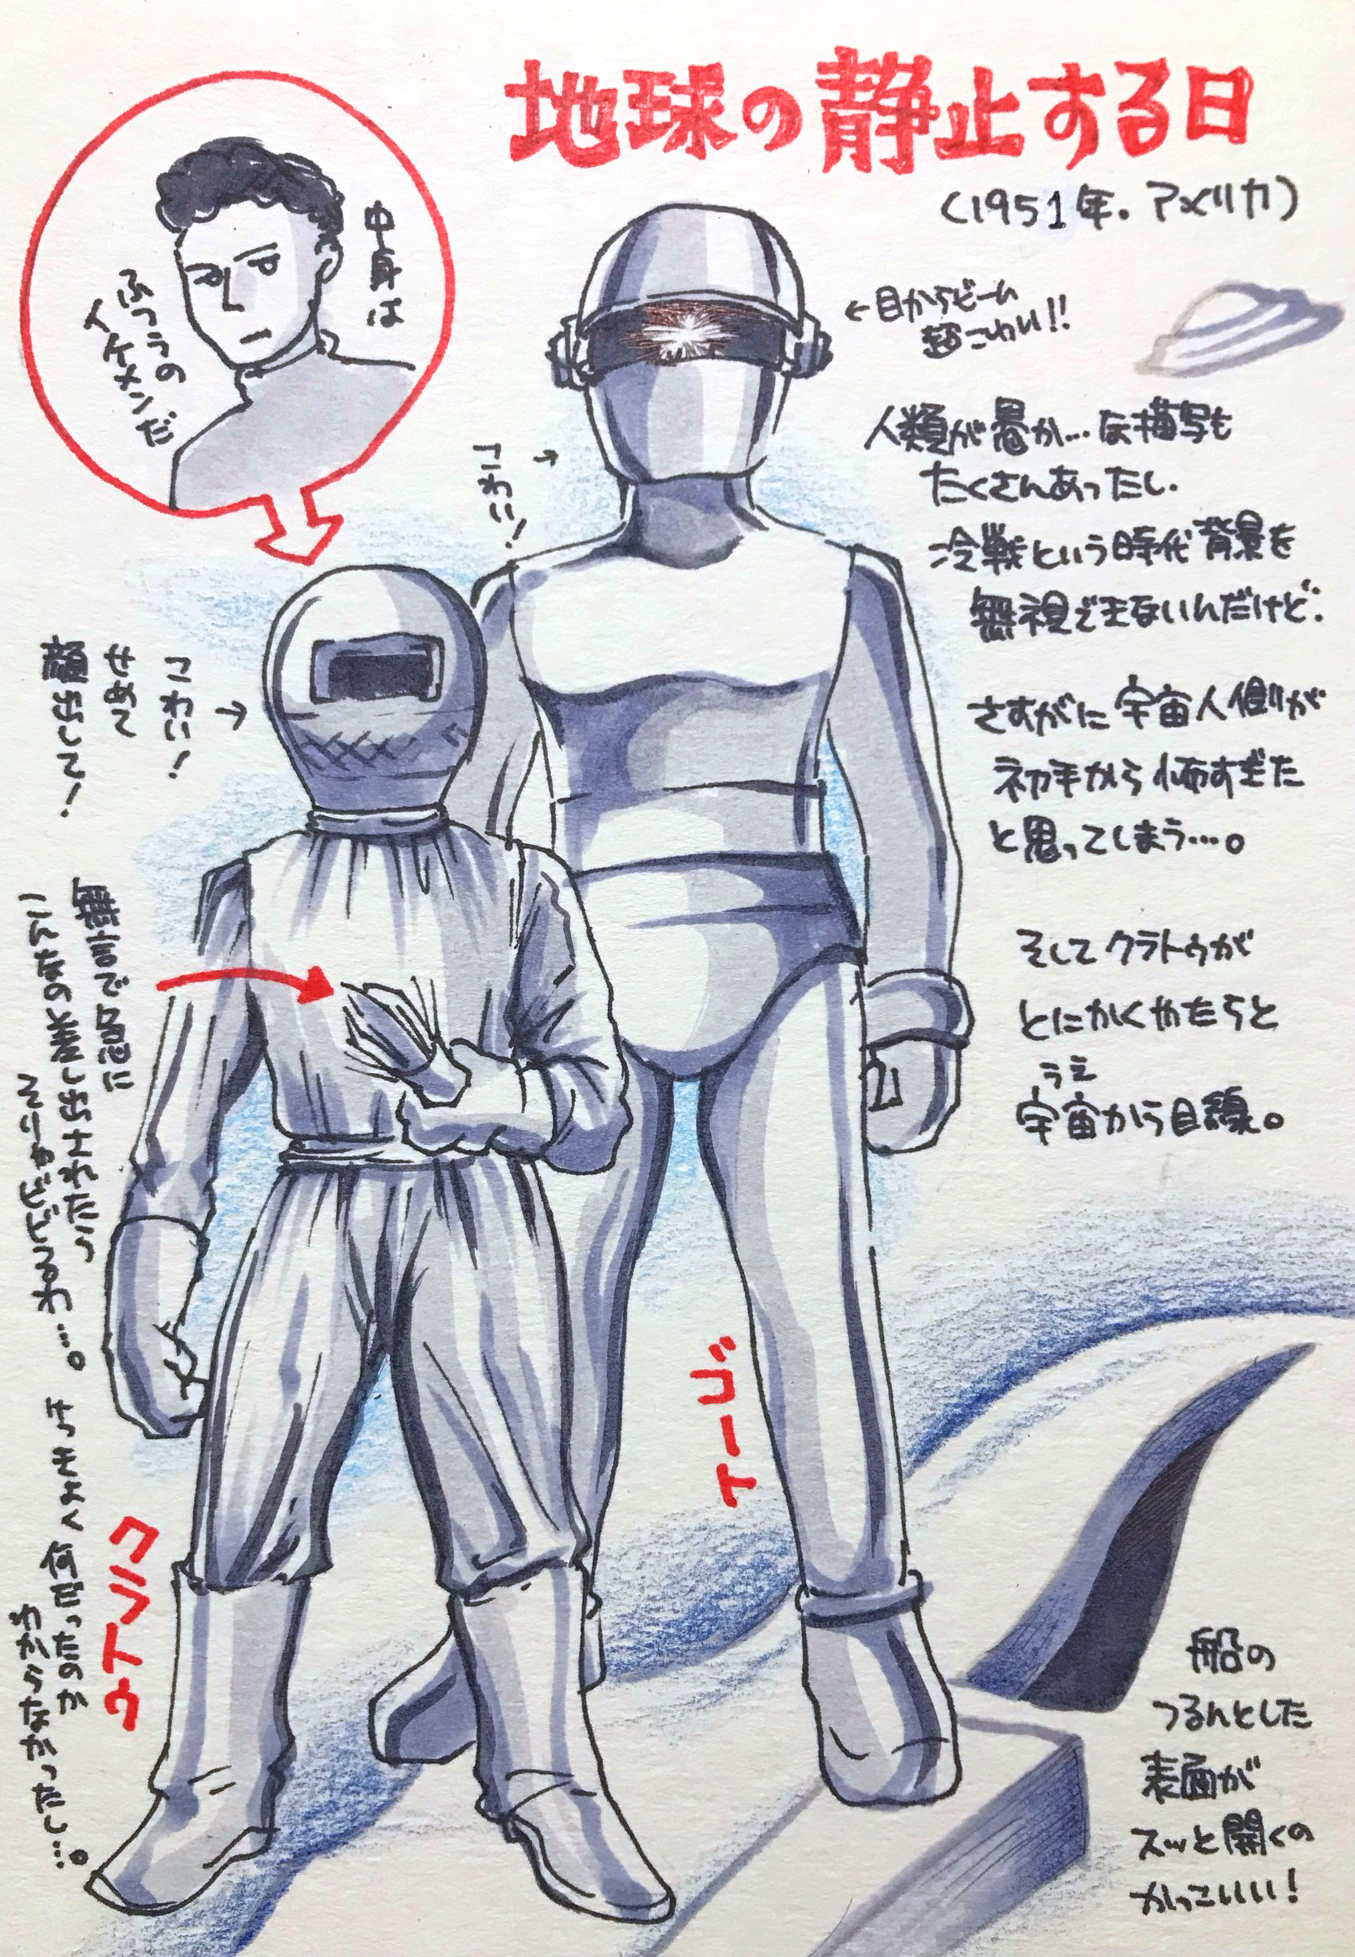 地球の静止する日
(1951年。アメリカ)
中身は
ふつうの
イケメンだ
←目からビーム
超こわい!!
こわい!
→
人類が愚か…な描写も
たくさんあったし、
冷戦という時代背景を
無視できないんだけど、
さすがに宇宙人側が
初手から怖すぎた
と思ってしまう…。
そしてクラトゥが
とにかくやたらと
うえ
宇宙から目線。
こわい!
せめて
顔出して!
→
無言で急に
こんなの差し出されたら
そりゃビビるわ…。
けっきょく何だったのか
わからなかったし…。
クラトゥ
ゴート
船の
つるんとした
表面が
スッと開くの
かっこいい!